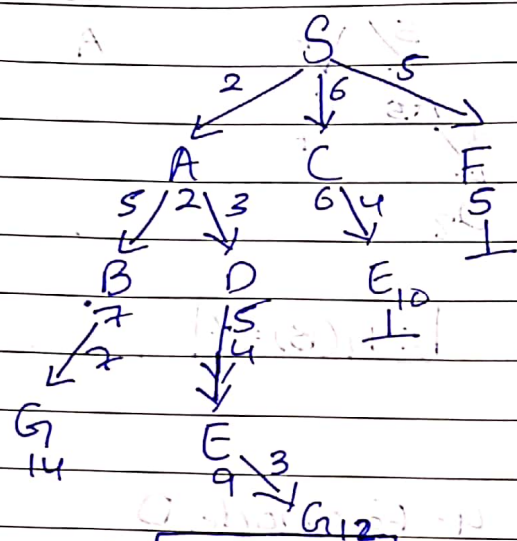 S
2 6 5
A C F
5 2 3 6 4 5
B D E 10
7 5
7 4
G E
14 9 3
G 12